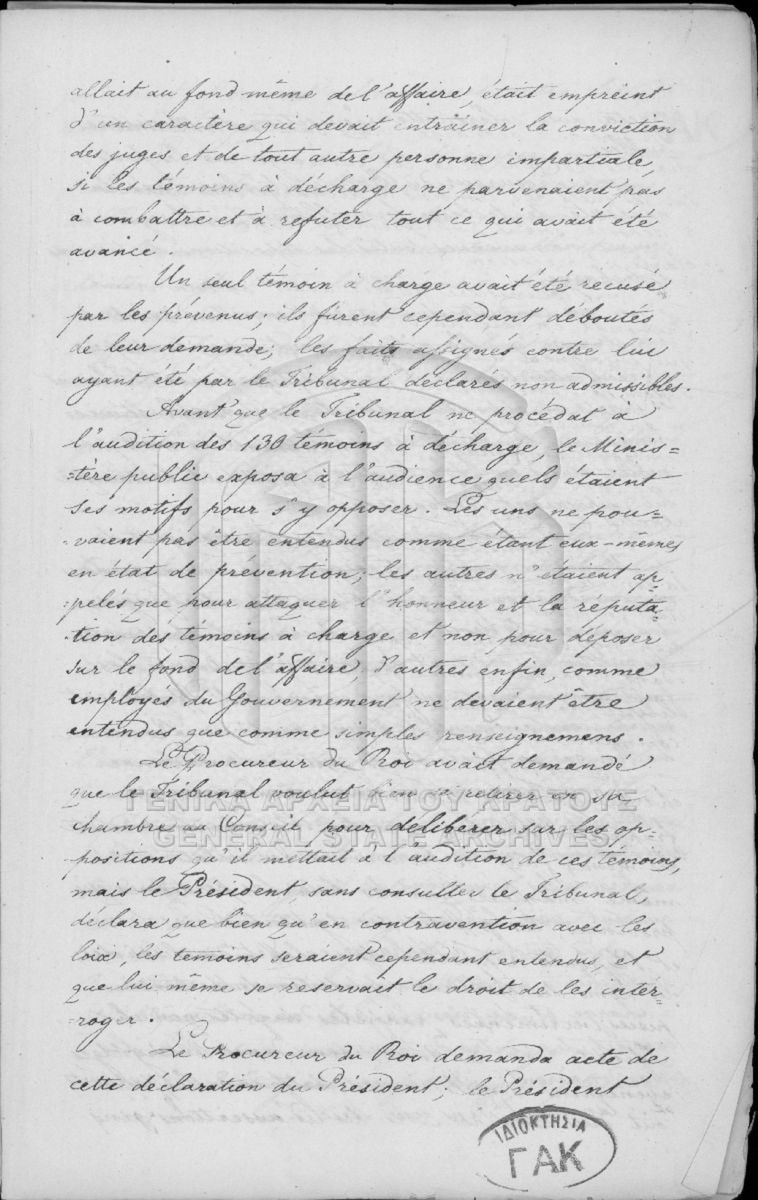 allait au fond même de l'affaire, était empreint
d'un caractère qui devait entraîner la conviction
des juges et de tout autre personne impartiale,
si les témoins à décharge ne parvenaient pas
à combattre et à refuter tout ce qui avait été
avancé.
Un seul témoin à charge avait été récusé
par les prévenus; ils fûrent cependant déboutés
de leur demande; les faits assignés contre lui
ayant été par le Tribunal déclarés non admissibles.
Avant que le Tribunal ne procédat à
l'audition des 130 témoins à décharge, le Minis=
=tère public exposa à l'audience quels étaient
ses motifs pour s'y opposer. Les uns ne pou=
=vaient pas être entendus comme étant eux-mêmes
en état de prévention; les autres n'étaient ap=
=pelés que pour attaquer l'honneur et la réputa=
=tion des témoins à charge et non pour déposer
sur le fond de l'affaire, d'autres enfin, comme
employés du Gouvernement ne devaient être
entendus que comme simples renseignemens.
Le Procureur du Roi avait demandé
que le Tribunal voulut bien se retirer en sa
chambre au Conseil, pour délibérer sur les op=
=positions qu'il mettait à l'audition de ces témoins,
mais le Président, sans consulter le Tribunal,
déclara que bien qu'en contravention avec les
loix, les temoins seraient cependant entendus, et
que lui même se reservait le droit de les inter=
=roger.
Le Procureur du Roi demanda acte de
cette déclaration du Président; le Président
ΓΕΝΙΚΑ ΑΡΧΕΙΑ ΤΟΥ ΚΡΑΤΟΥΣ
GENERAL STATE ARCHIVES
ΙΔΙΟΚΤΗΣΙΑ
ΓΑΚ